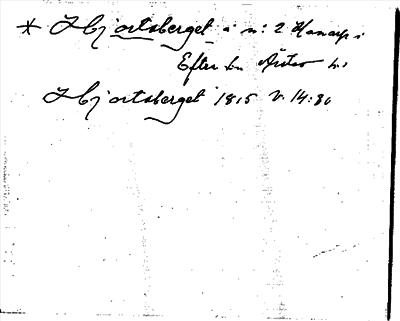 * Hjortsberget i n: 2 Hanarp i
Efter
Hjortsberget 1815 v. 14:80